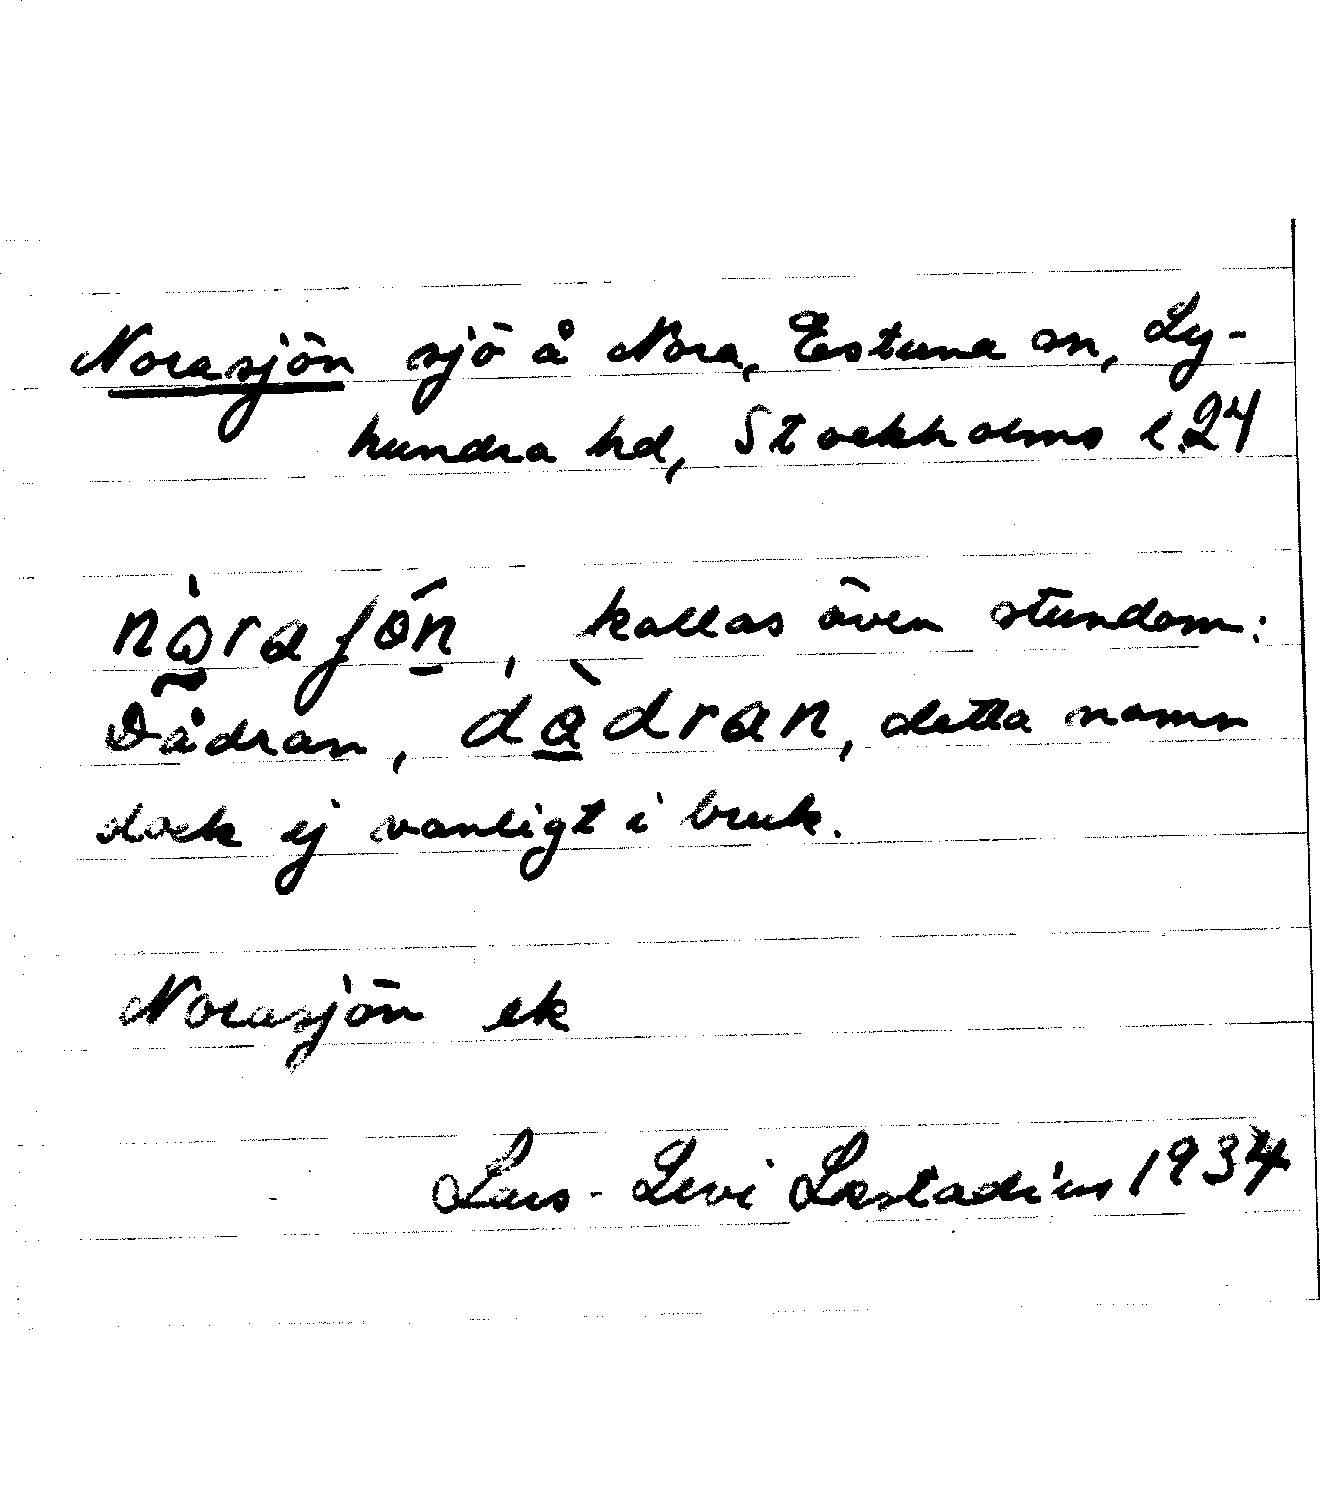 Norasjön sjö å Nora, Estuna sn, Ly-
hundra hd, Stockholms l. 24
kallas även stundom:
Dådran, dàdran, detta namn
dock ej vanligt i bruk.
Norasjön ek
Lars-Levi Læstadius 1934